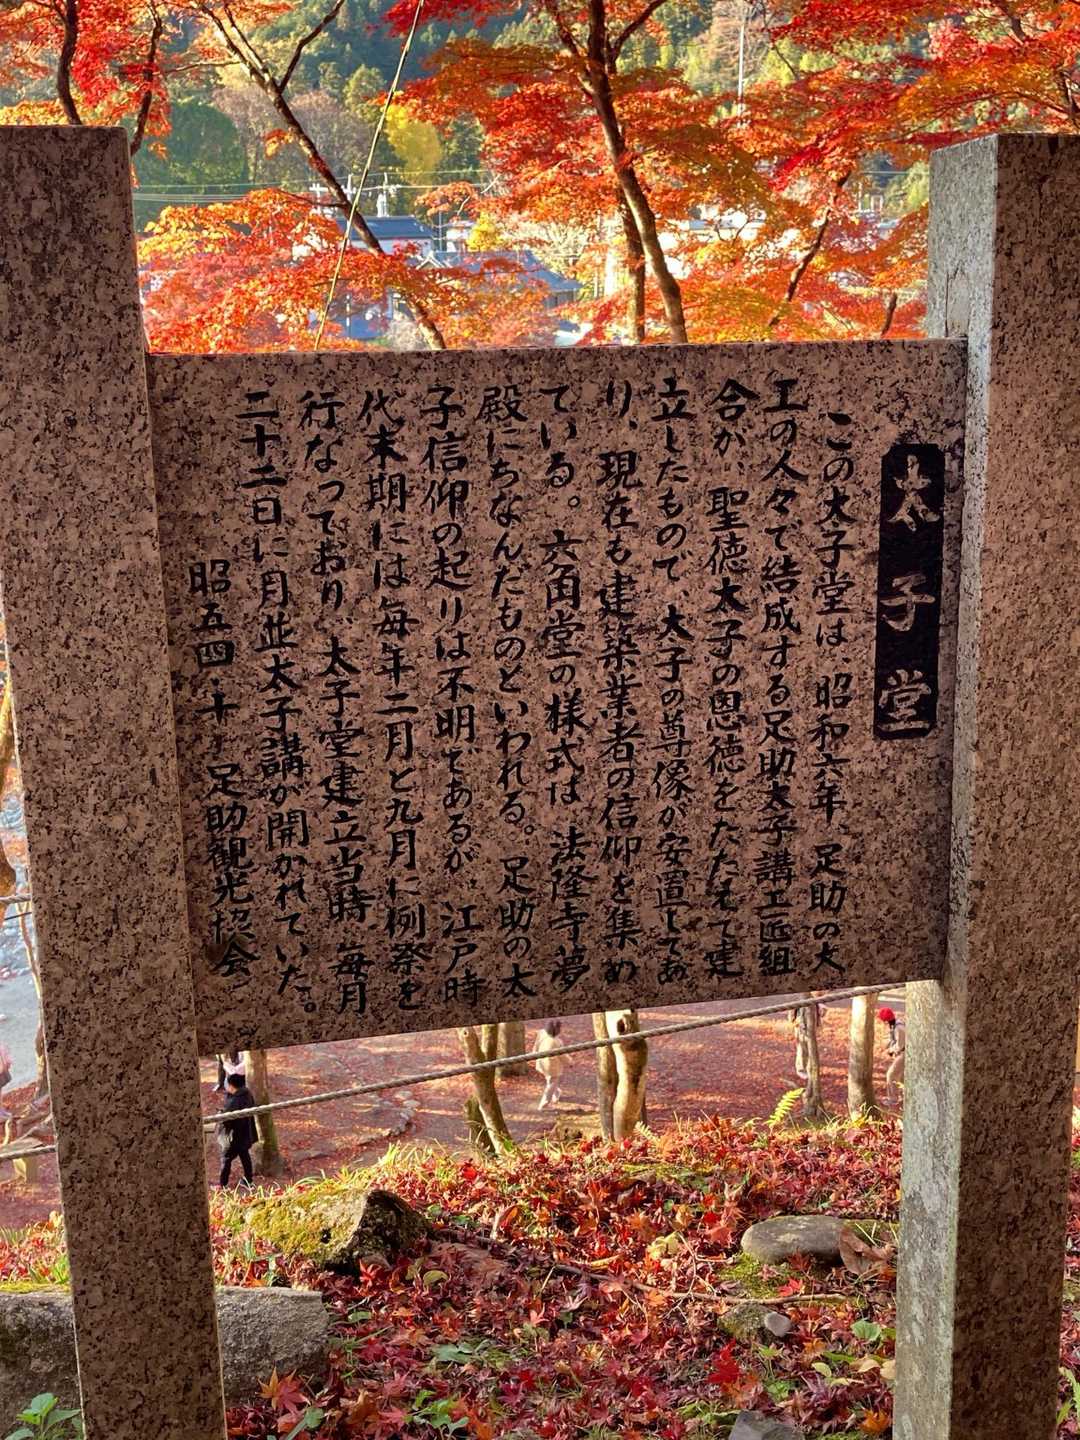 太子堂
この太子堂は、昭和六年、足助の大
工の人々で結成する足助太子講工匠組
合が、聖徳太子の恩徳をたたえて建
立したもので、太子の尊像が安置してあ
り、現在も建築業者の信仰を集め
ている。六角堂の様式は、法隆寺夢
殿にちなんだものといわれる。足助の太
子信仰の起りは不明であるが、江戸時
代末期には毎年二月と九月に例祭を
行なっており、太子堂建立当時、毎月
二十二日に月並太子講が開かれていた。
昭五四・十 足助観光協会